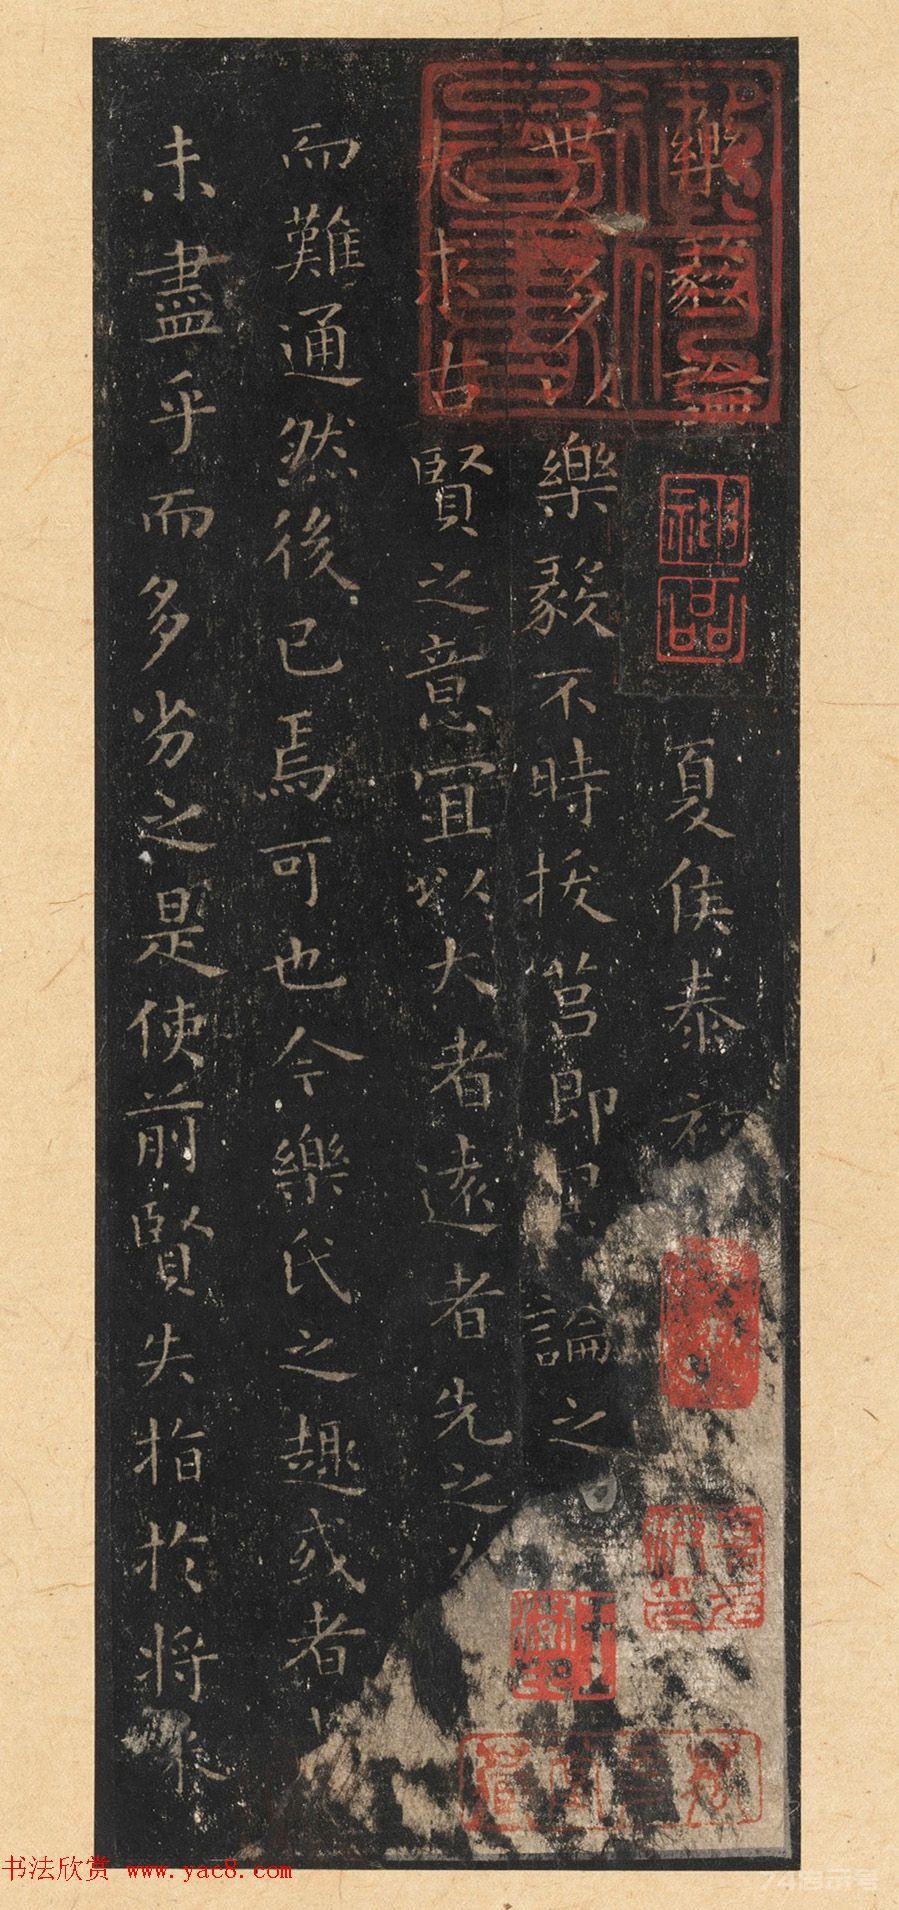 樂毅論
夏侯泰初
世多以樂毅不時拔莒即墨論之
夫求古賢之意宜以大者遠者先之
而難通然後已焉可也今樂氏之趣或者
未盡乎而多劣之是使前賢失指於將來
神品
书法欣赏 www.yac8.com